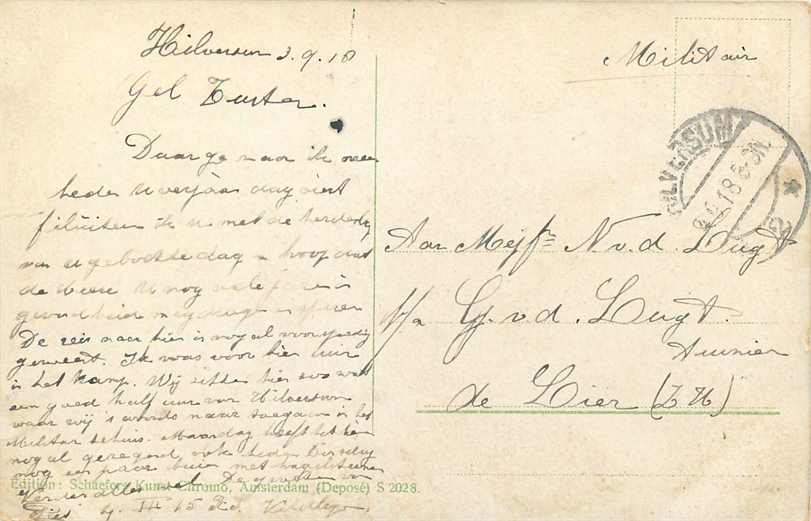 Hilversum 3.9.18
Gel Zuster.
Daar ge naar ik meen
heden u verjaardag viert
feliciteer ik u met de herdenking
van u geboortedag en hoop dat
de Heere u nog vele jaren in
gezondheid mag
De reis naar hier is nogal voorspoedig
geweest. Ik was voor hier uur
in het Kamp. Wij zitten hier zoo wat
een goed half uur van Hilversum
waar wij 's avonds naar toegaan in het
Militair tehuis. Maandag heeft het hier
nog al geregend, ook heden Dinsdag
nog een paar buien met hagelsteenen
Verder alles wel. De groeten van
4 III 15
Militair
HILVERSUM
18
Aan Mejfr N. v. d. Lugt
p/a G. v. d. Lugt.
Tuinier
de Lier (Z H)
Edition: Schaefers Kunst-Chromo, Amsterdam (Deposé) S 2028.